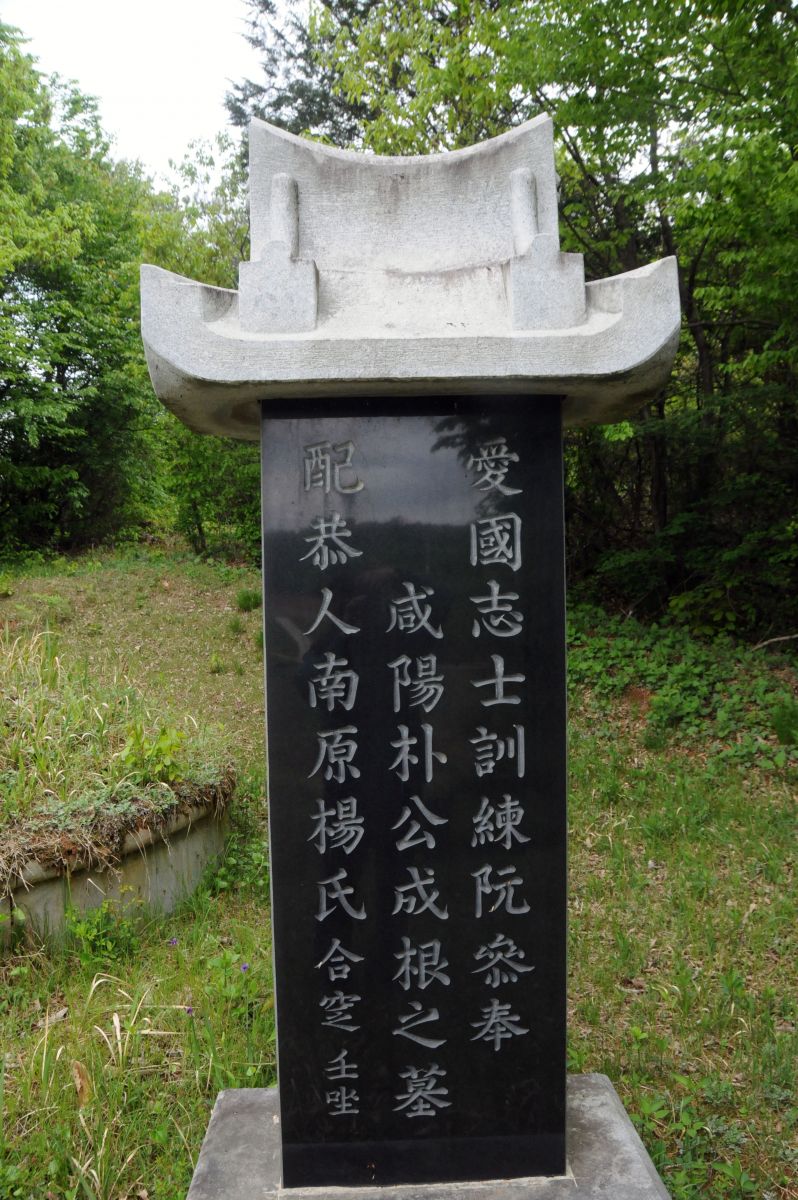 愛國志士訓練阮參奉
咸陽朴公成根之墓
配恭人南原楊氏合窆 壬坐